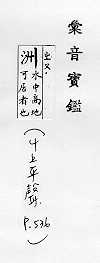 彙音寶鑑
洲 水中高地
可居者也
(丩上平聲
P.536)